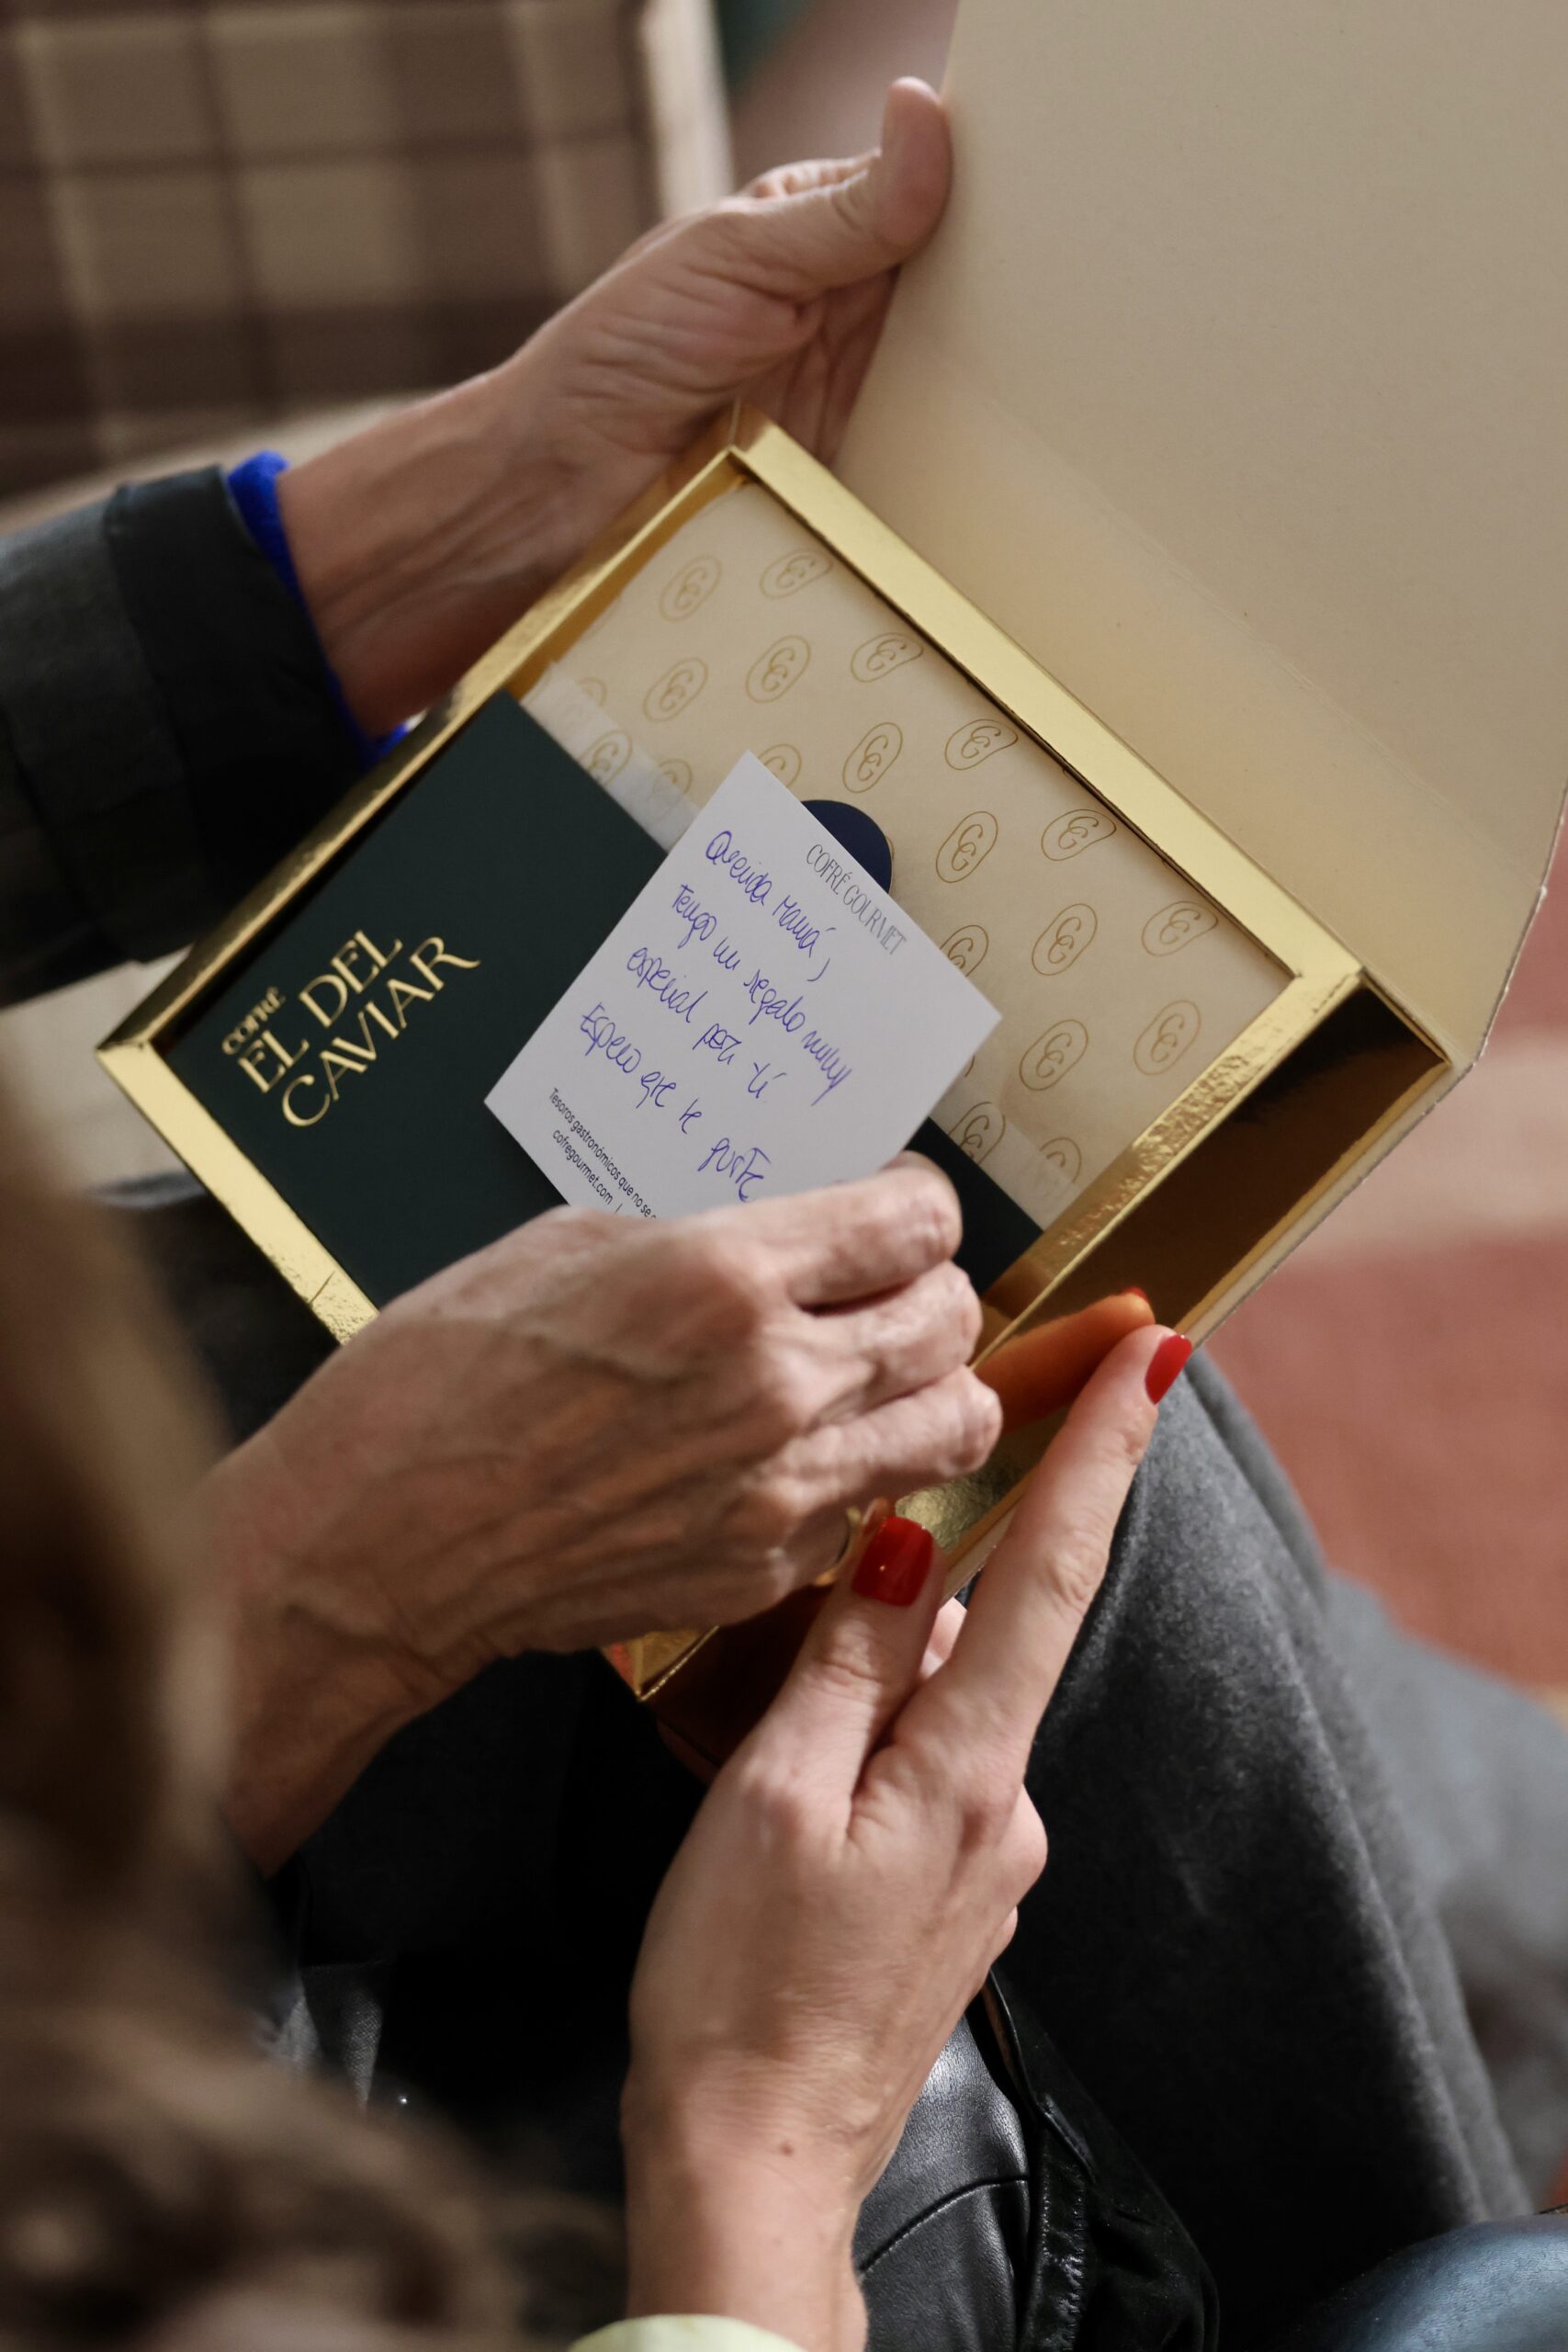 COFRÉ
EL DEL
CAVIAR
COFRÉ GOURMET
Querida Mamá,
Tengo un regalo muy
especial para tí.
Espero que te guste
Tesoros gastronómicos que no se
cofregourmet.com |